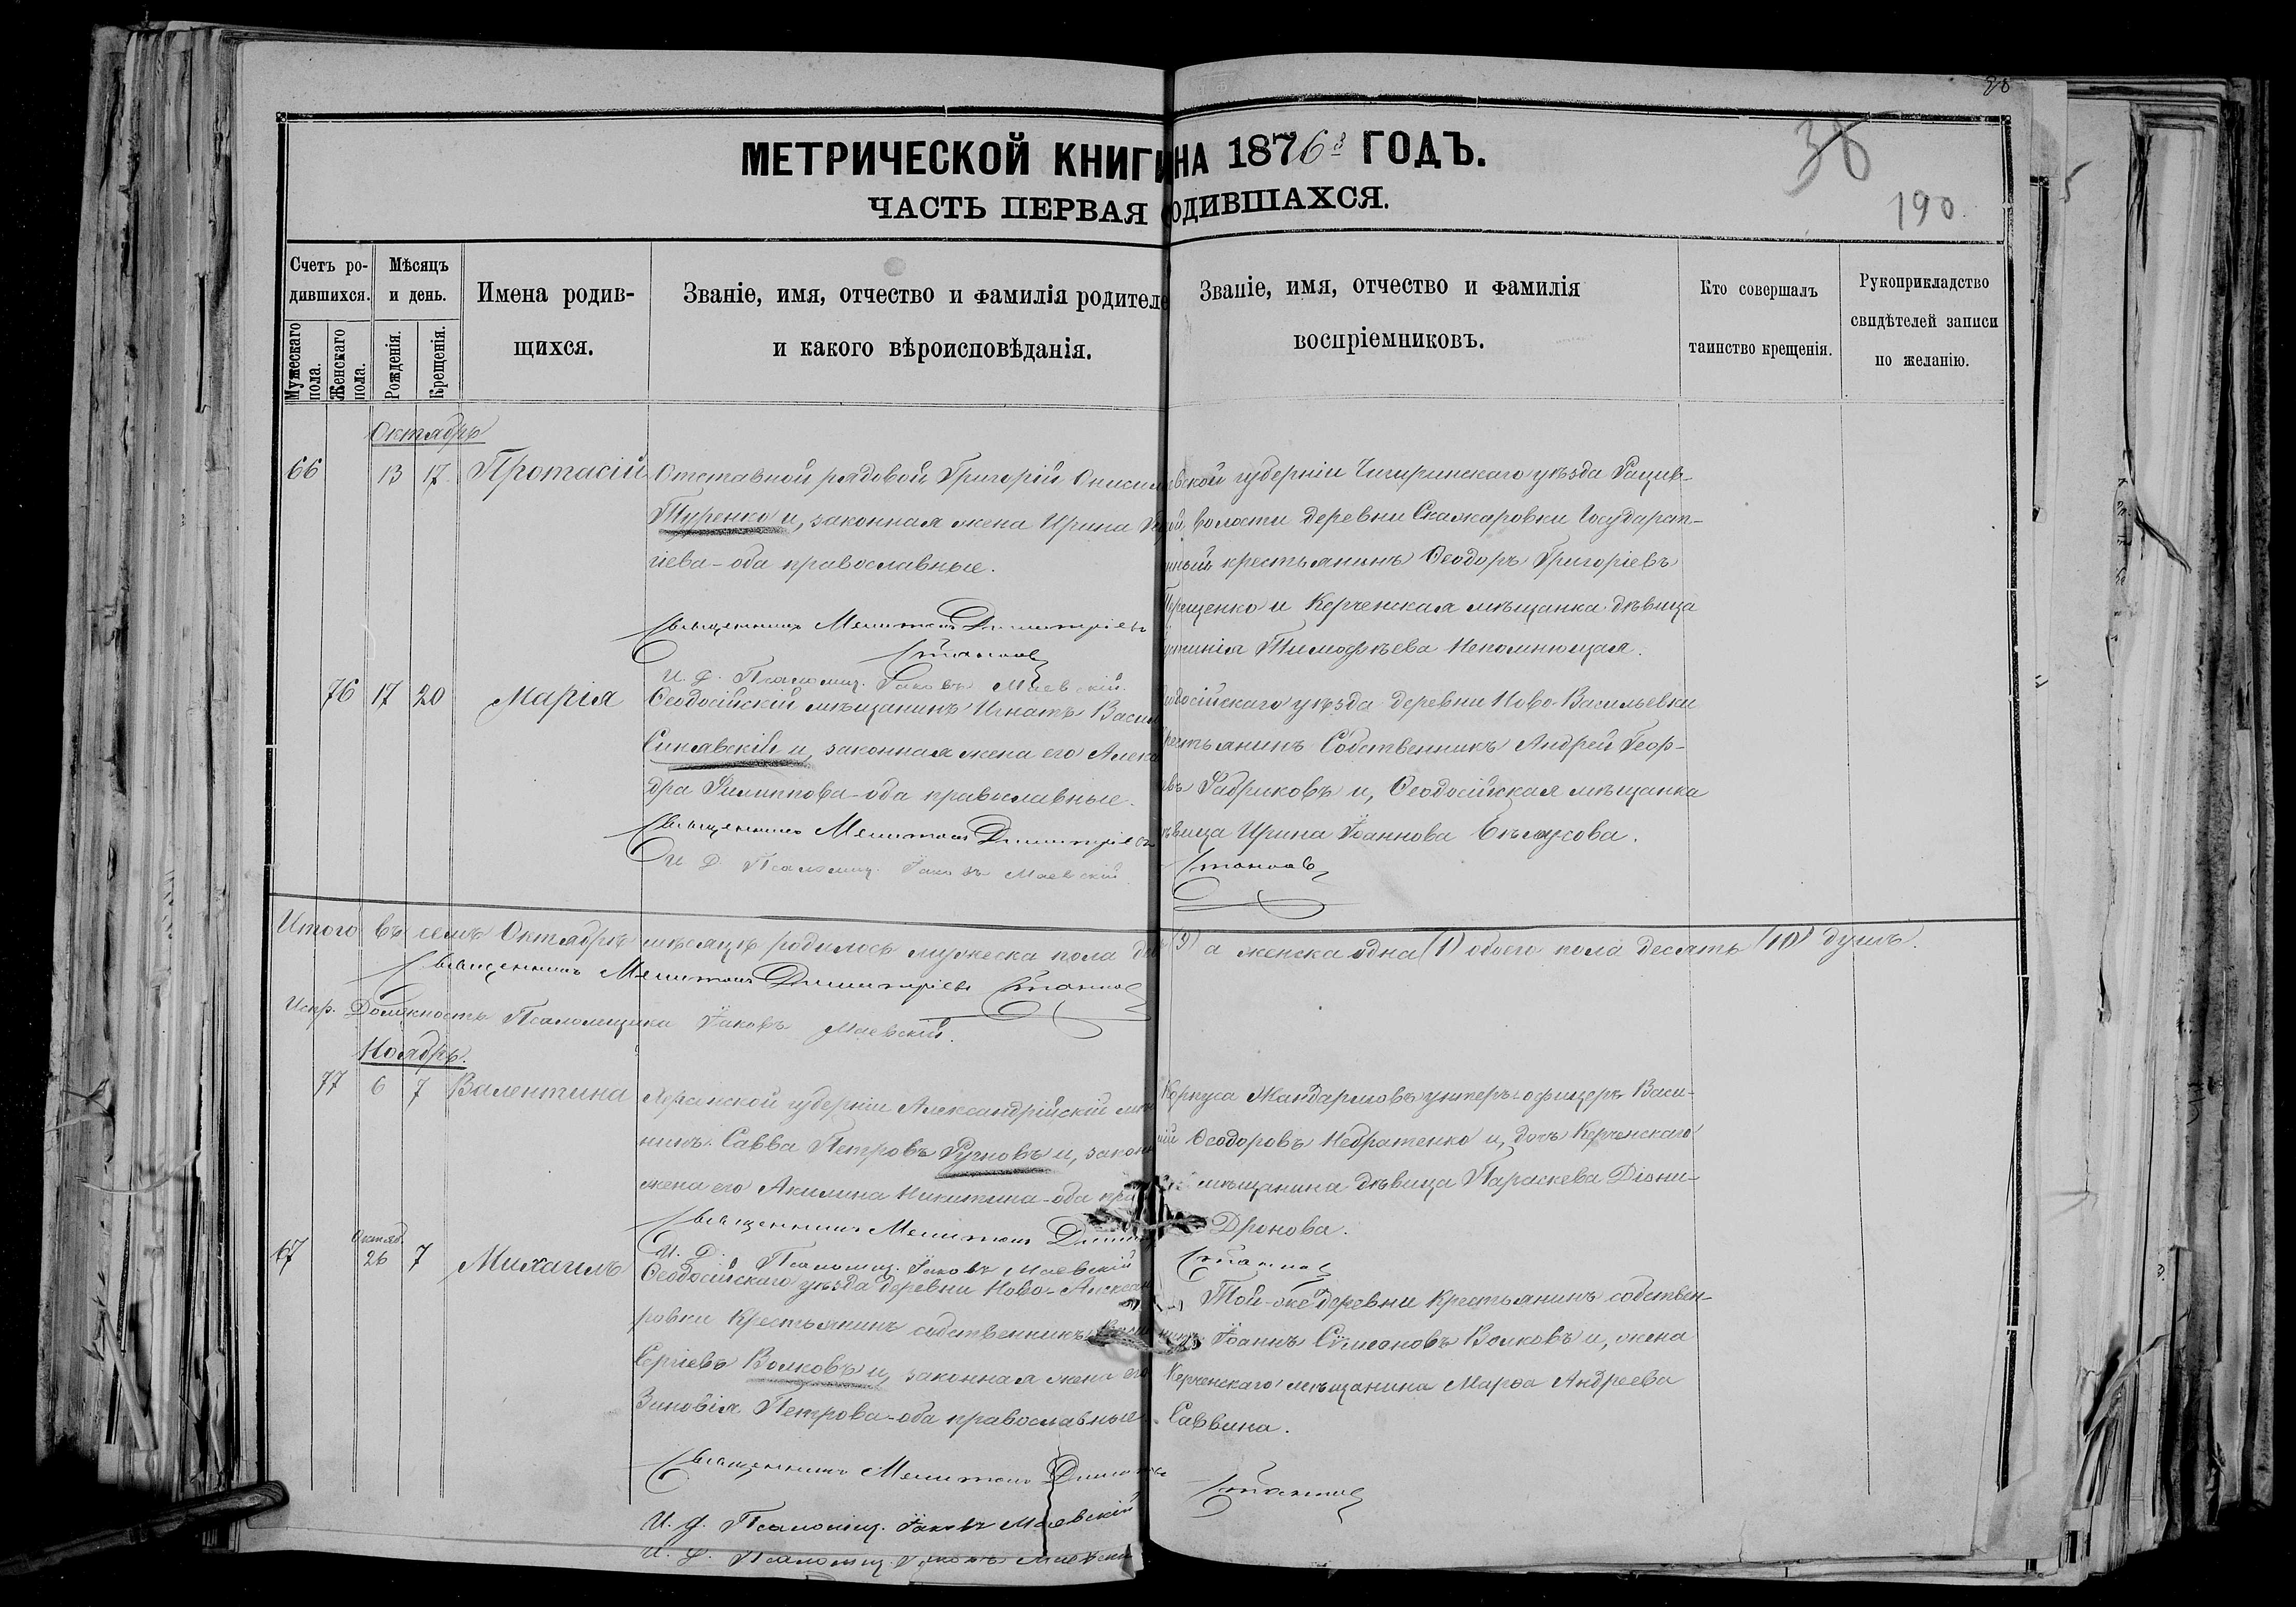 38
МЕТРИЧЕСКОЙ КНИГИ НА 1876й ГОДЪ.
38
190
ЧАСТЬ ПЕРВАЯ ОДИВШАХСЯ.
Счетъ ро-
дившихся.
Мужескаго пола.
Женскаго пола.
Мѣсяцъ
и день.
Рожденія.
Крещенія.
Имена родив-
щихся.
Званіе, имя, отчество и фамилія родителе
и какого вѣроисповѣданія.
Званіе, имя, отчество и фамилія
воспріемниковъ.
Кто совершалъ
таинство крещенія.
Рукоприкладство
свидѣтелей записи
по желанію.
Октябрь
66 13 17 Протасій
Отставной рядовой Григорій Онисим
Туренко и, законная жена Ирина
гіева - оба православные.
Священникъ Мелитонъ Димитріевъ
Станковъ
И. Д. Псаломщ. Іаковъ Маевскій.
вской губерніи Чигиринскаго уѣзда Рацев-
ой волости деревни Скажаровки Государст-
нный крестьянинъ Ѳеодоръ Григоріевъ
Терещенко и Керченская мѣщанка дѣвица
Тимофѣева Непомнющая.
76 17 20 Марія
Ѳеодосійскій мѣщанинъ Игнатъ Васил
Синявскій и, законная жена его Алекса
дра Филиппова - оба православные.
Священникъ Мелитонъ Димитріевъ
И Д Псаломщ. Іаковъ Маевскій
одосійскаго уѣзда деревни Ново-Васильевки
рестьянинъ Собственникъ Андрей Геор-
евъ Фабриковъ и, Ѳеодосійская мѣщанка
ѣвица Ирина Іоаннова Бѣлоусова.
Станковъ
Итого въ семъ Октябрѣ мѣсяцѣ родилось мужеска пола дев (9) а женска одна (1) обоего пола десять (10) душъ.
Священникъ Мелитонъ Димитріевъ Станковъ
Испр. Должность Псаломщика Іаковъ Маевскій.
Ноябрь.
77 6 7 Валентина
Херсонской губерніи Александрійскій мѣ
нинъ Савва Петровъ Ручковъ и, закон
жена его Акилина Никитина - оба пра
Священникъ Мелитонъ Димит
И. Д. Псаломщ. Іаковъ Маевскій
Корпуса Жандармовъ унтеръ-офицеръ Васи-
лій Ѳеодоровъ Небратенко и, дочь Керченскаго
мѣщанина дѣвица Параскева Діони-
Дронова.
Станковъ
67 Октяб. 26 7 Михаилъ
Ѳеодосійскаго уѣзда деревни Ново-Алексан
ровки Крестьянинъ собственникъ
Сергіевъ Волковъ и, законная жена его
Зиновія Петрова - оба православные.
Священникъ Мелитонъ Димитріевъ
И. Д. Псаломщ. Іаковъ Маевскій
И. Д. Псаломщ. Іаковъ Маевскій
Той-же деревни Крестьянинъ собствен-
никъ Іоаннъ Сѵмеоновъ Волковъ и, жена
Керченскаго мѣщанина Марѳа Андреева
Саввина.
Станковъ